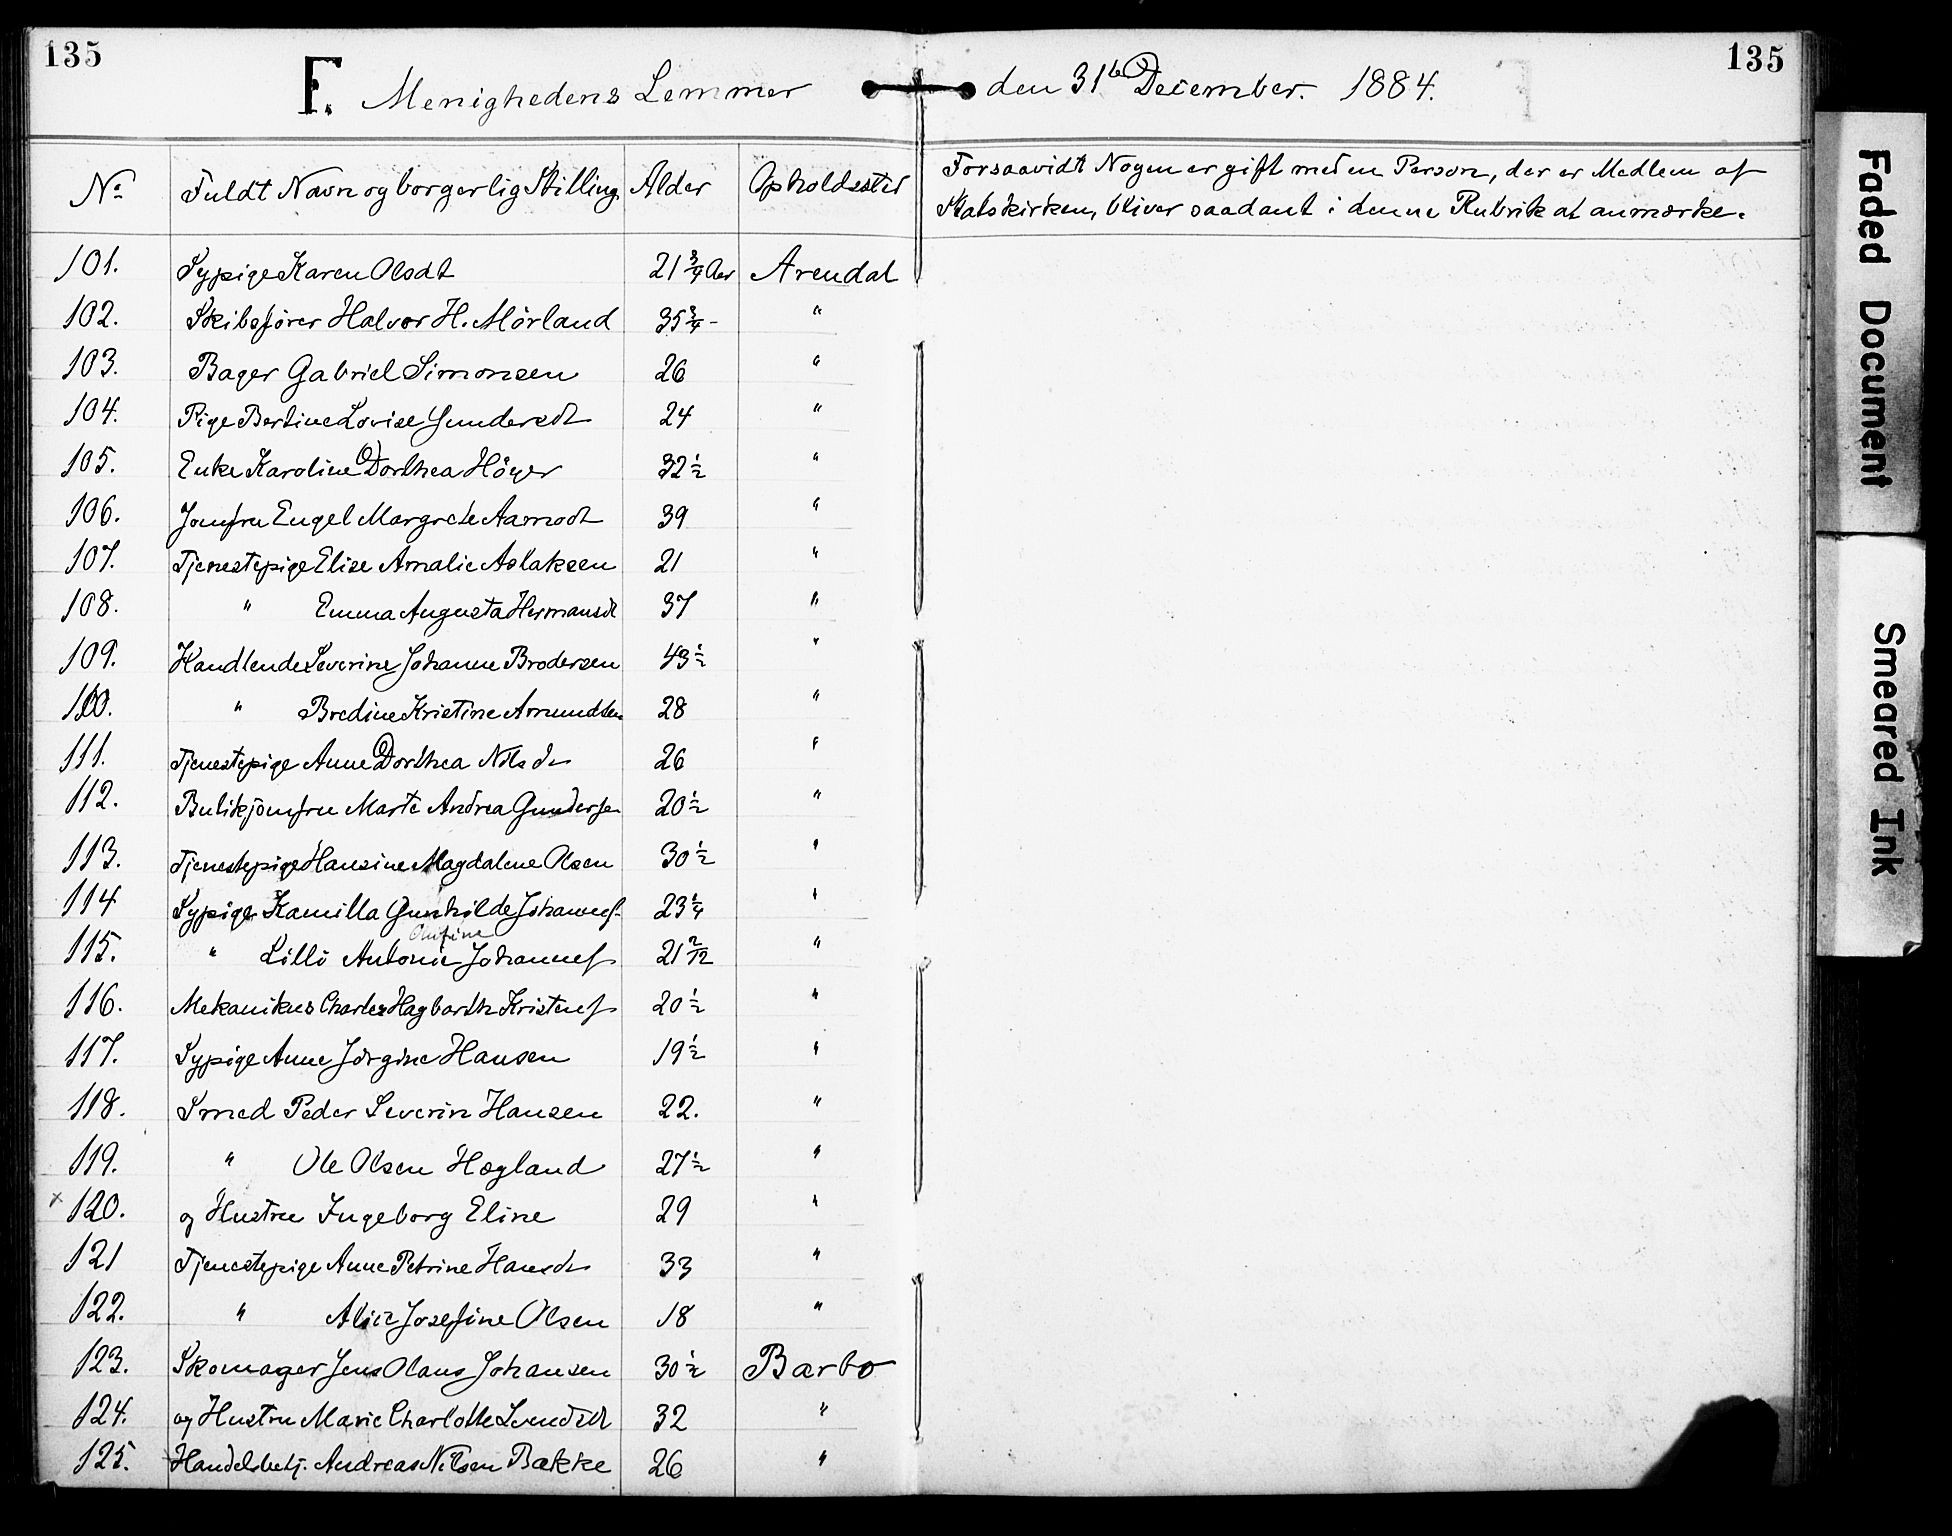 135 135
F. Menighedens Lemmer den 31te December. 1884.
No Fuldt Navn og borgerlig Stilling Alder Opholdssted Forsaavidt Nogen er gift med en Person, der er Medlem af
Statskirken, bliver saadant i denne Rubrik at anmærke.
101. Sypige Karen Olsdt 21 3/4 Aar Arendal
102. Skibsfører Halvor H. Mørland 35 3/4 - "
103. Bager Gabriel Simonsen 26 "
104. Pige Bertine Lovise Gundersdt 24 "
105. Enke Karoline Dorthea Höyer 32 1/2 "
106. Jomfru Engel Margrete Aamodt 39 "
107. Tjenestepige Elise Amalie Aslaksen 21 "
108. " Emma Augusta Hermansdt 37 "
109. Handlende Severine Johanne Brodersen 43 1/2 "
110. " Bredine Kristine Amundsen 28 "
111. Tjenestepige Anne Dorthea Nilsdt 26 "
112. Butikjomfru Marte Andrea Gundersen 20 1/2 "
113. Tjenestepige Hansine Magdalene Olsen 30 1/2 "
114 Sypige Kamilla Gunhilde Johannes. 23 1/4 "
115. " Lilli Antonie Johannes 21 2/12 "
116. Mekanikus Charles Hagbarth Kristens 20 1/2 "
117. Sypige Anne Jørgine Hansen 19 1/2 "
118. Smed Peder Severin Hansen 22. "
119. " Ole Olsen Hægland 27 1/2 "
x 120. og Hustru Ingeborg Eline 29 "
121 Tjenestepige Anne Petrine Hansdt 33 "
122. " Alice Josefine Olsen 18 "
123. Skomager Jens Olaus Johansen 30 1/2 Barbo
124. og Hustru Marie Charlotte Svendsdt 32 "
125. Handelsbetj. Andreas Nilsen Bakke 26 "
Faded Document
Smeared Ink